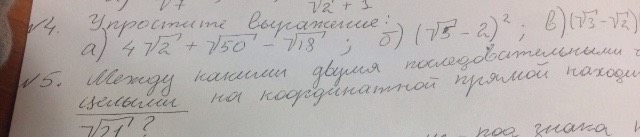 √2 + 1
№4. Упростите выражение:
а) 4√2 + √50 − √18 ; б) (√5 − 2)² ; в) (√3 − √2)
№5. Между какими двумя последовательными
целыми на координатной прямой находи
√21 ?
под знака